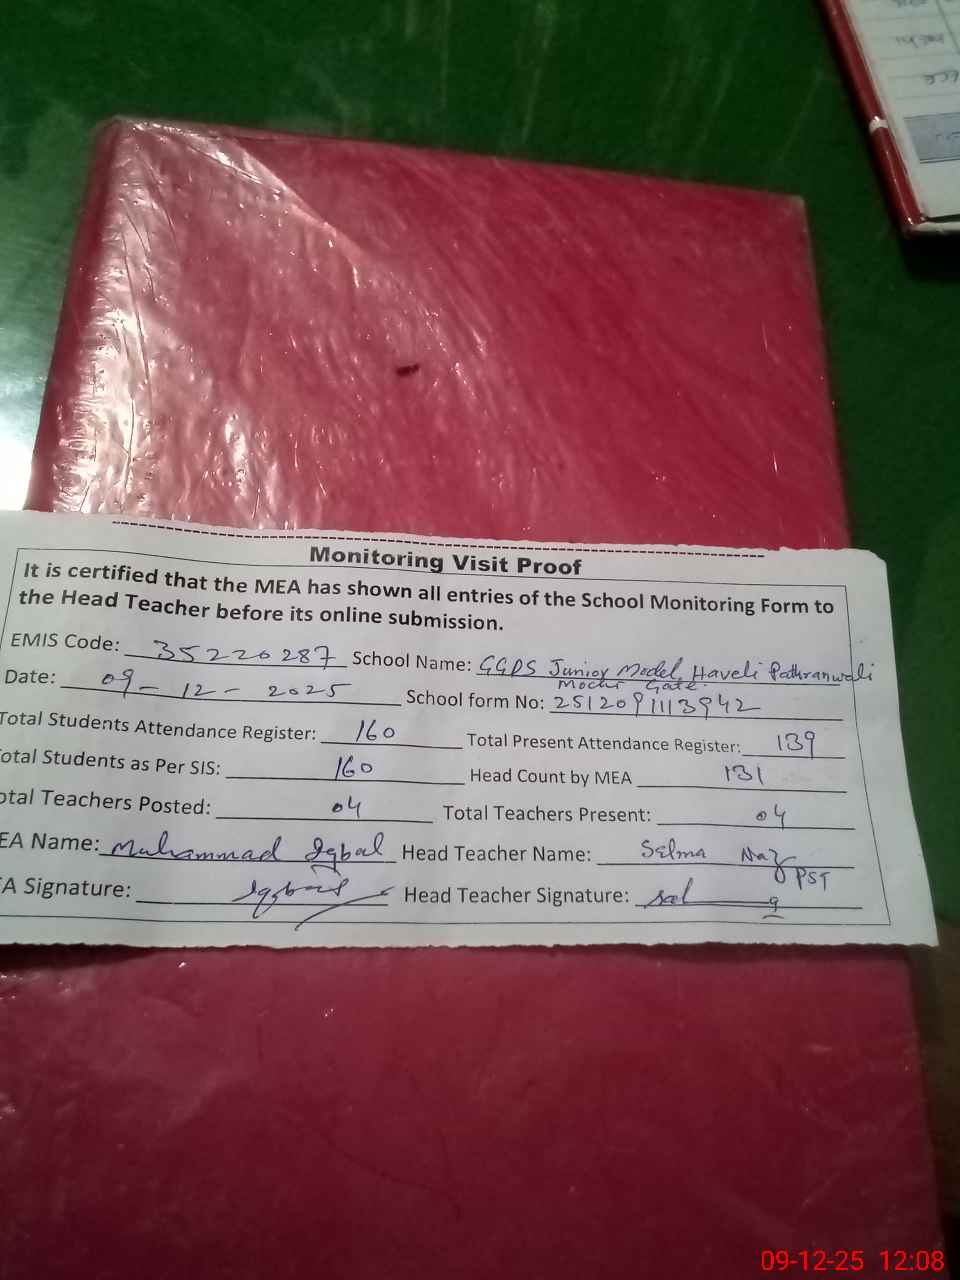 Monitoring Visit Proof
It is certified that the MEA has shown all entries of the School Monitoring Form to
the Head Teacher before its online submission.
EMIS Code: 35220287 School Name: GGPS Junior Model, Haveli Pathranwali
Mochi Gate.
Date: 09-12-2025 School form No: 2512091113942
Total Students Attendance Register: 160 Total Present Attendance Register: 139
otal Students as Per SIS: 160 Head Count by MEA 131
otal Teachers Posted: 04 Total Teachers Present: 04
EA Name: Muhammad Iqbal Head Teacher Name: Selma Naz
PST
A Signature: Iqbal Head Teacher Signature:
09-12-25 12:08